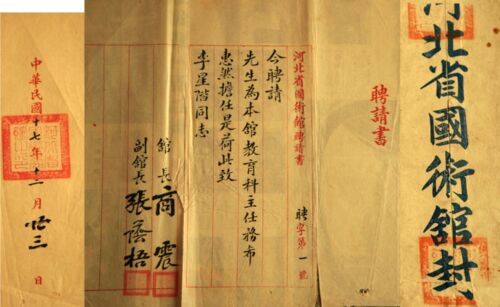 河北省國術館封
聘請書
河北省國術館聘請書
聘字第一號
今聘請
先生為本館教育科主任務希
惠然擔任是荷此致
李星階同志
館長 商震
副館長 張蔭梧
中華民國十七年十一月廿三日